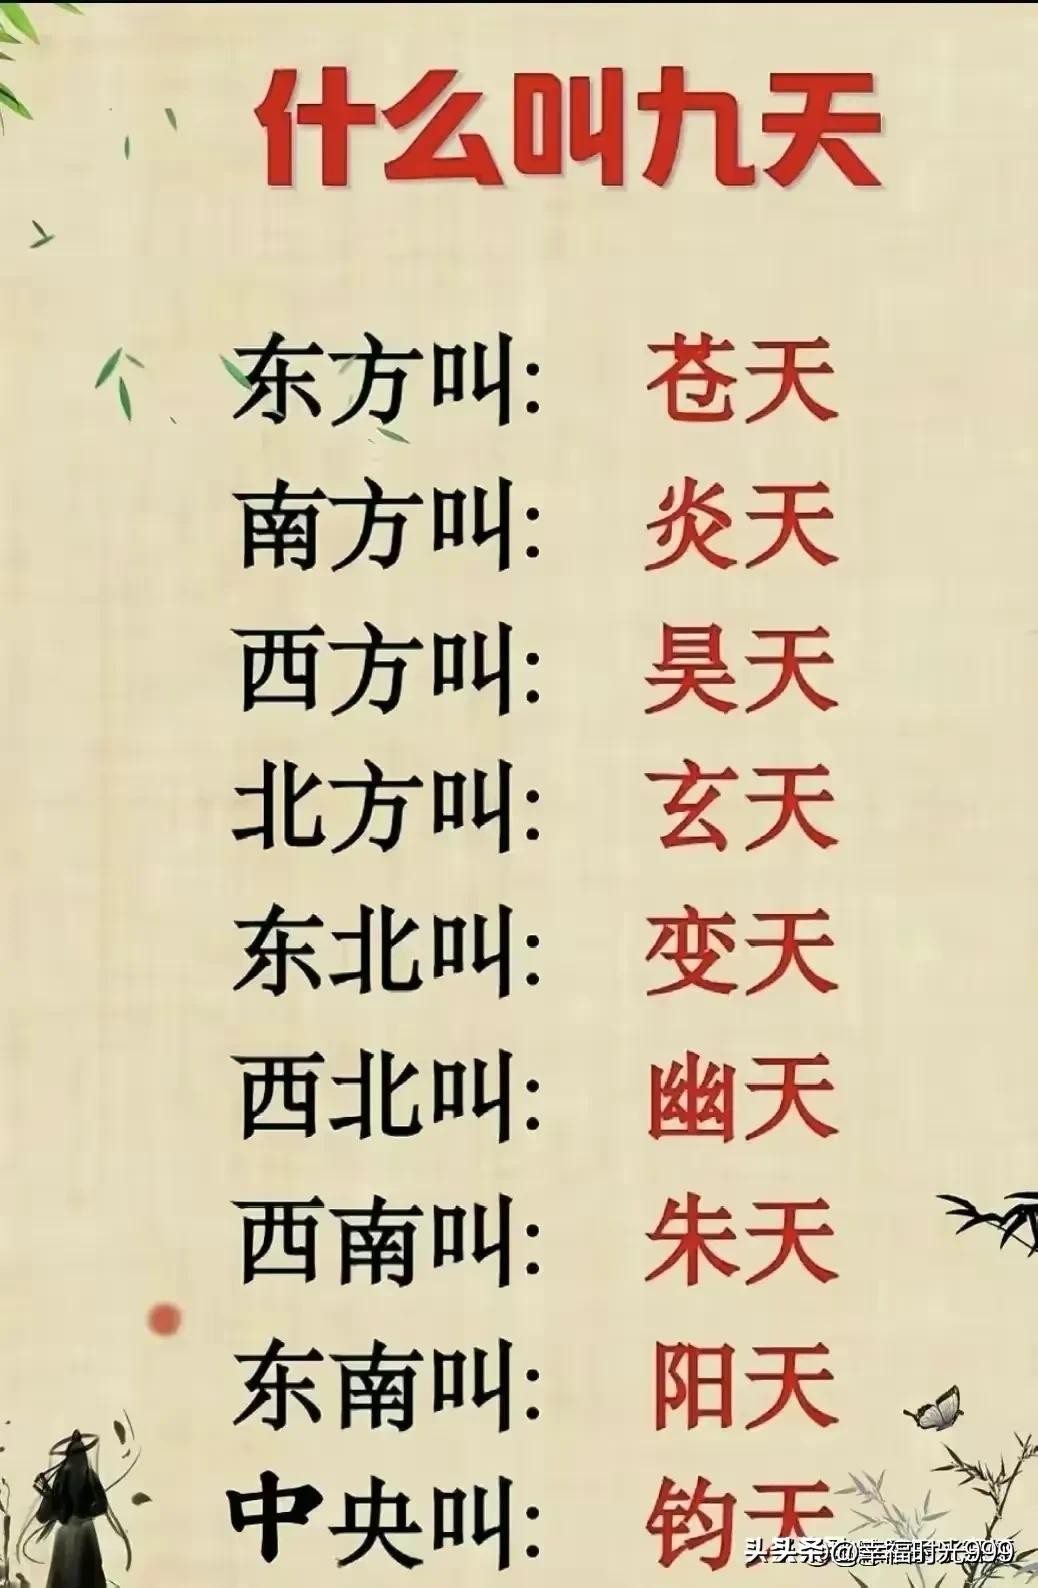 什么叫九天
东方叫: 苍天
南方叫: 炎天
西方叫: 昊天
北方叫: 玄天
东北叫: 变天
西北叫: 幽天
西南叫: 朱天
东南叫: 阳天
中央叫: 钧天
头条 @幸福时光999